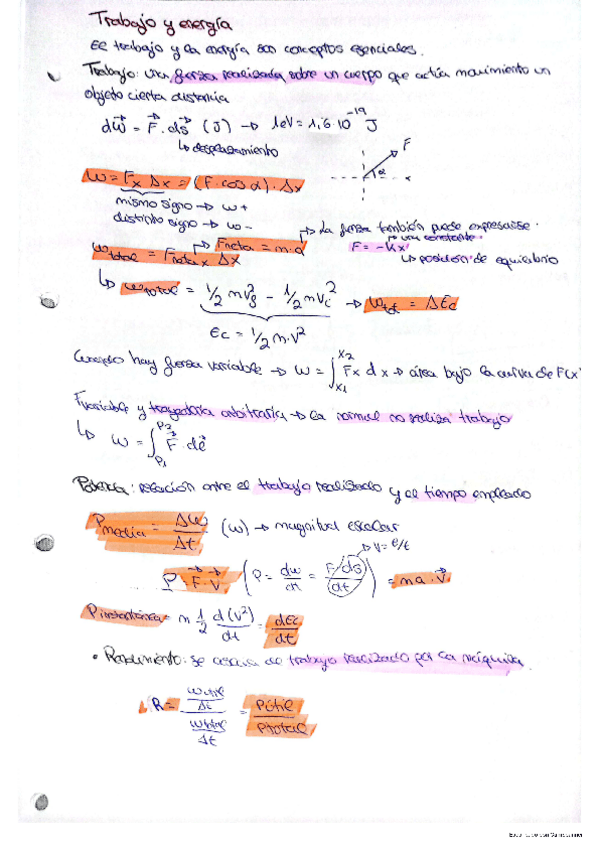 Trabajo y energía
El trabajo y la energía son conceptos esenciales.
Trabajo: una fuerza realizada sobre un cuerpo que actúa movimiento un
objeto cierta distancia
dw⃗ = F⃗ · ds⃗ (J) → 1eV = 1,6·10⁻¹⁹ J
↳ desplazamiento
F
α
W = Fx Δx = (F·cos α)·Δx
mismo signo → w +
distinto signo → w -
↳ La fuerza también puede expresarse.
↳ Fneta = m·a
F = -Kx
↳ una constante
↳ posición de equilibrio
Wtotal = Fneta x Δx
↳ Wtotal = 1/2 mV²f - 1/2 mV²i → Wtot = ΔEc
Ec = 1/2 m·V²
Cuando hay fuerza variable → W = ∫ₓ₁ˣ² Fx dx → área bajo la curva de F(x
Fvariable y trayectoria arbitraria → la normal no realiza trabajo
↳ W = ∫P₁P₂ F⃗·dl⃗
Potencia: relación entre el trabajo realizado y el tiempo empleado
Pmedia = ΔW/Δt (w) → magnitud escalar
↳ v = e/t
P = F⃗·V⃗ (P = dw/dt = F/ds⃗/dt) = ma·v⃗
Pinstantánea = m 1/2 d(V²)/dt = dEc/dt
• Rendimiento: se trabajo realizado por la máquina
↳ R = Wútil/Δt / Wtotal/Δt = Pútil/Ptotal